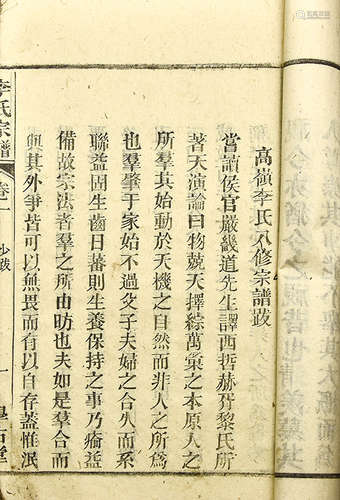 高嶺李氏八修宗譜跋
嘗讀侯官嚴畿道先生譯西哲赫胥黎氏所
著天演論曰物兢天擇綜萬彙之本原人之
所羣其始動於天機之自然而非人之所爲
也羣肇于家始不過父子夫婦之合久而系
聯益固生齒日蕃則生養保持之事乃瘉益
備故宗法者羣之所由昉也夫如是羣合而
與其外爭皆可以無畏而有以自存蓋惟泯
李氏宗譜 卷一
跋